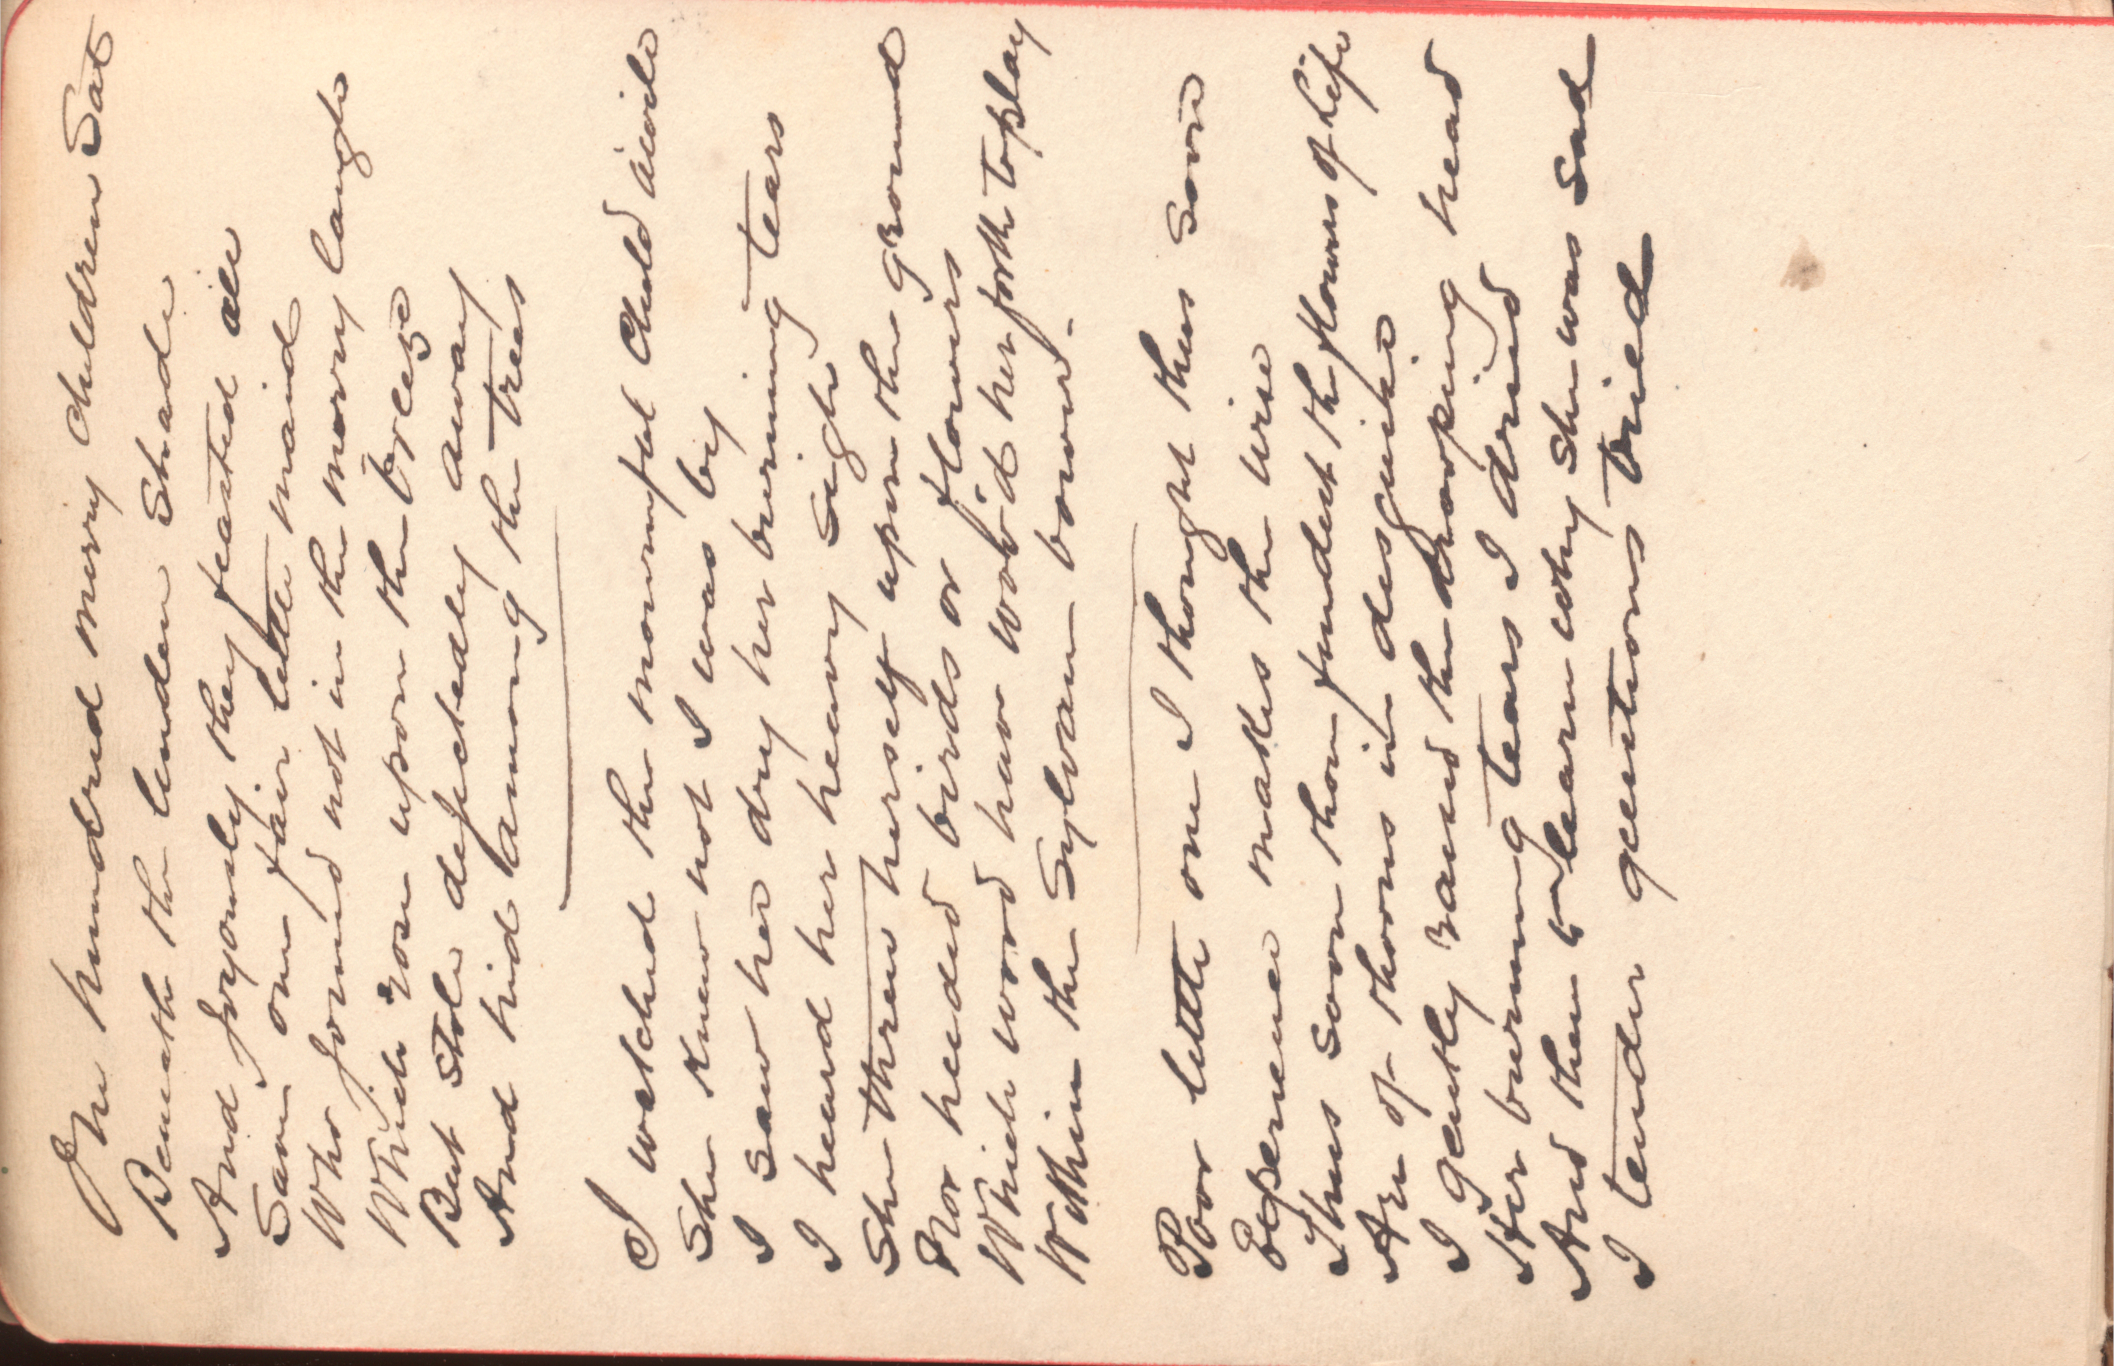 One hundred merry children Sat
Beneath the linden Shade
And joyously they feasted all
Save one fair little maid
Who joined not in the merry laugh
Which rose upon the breeze
But stole dejectedly away
And hid among the trees
I watched the mournful Child awile
She knew not I was by
I saw her dry her burning tears
I heard her heavy sigh
She threw herself upon the ground
Nor heeded birds or flowers
Which word have woo'd her forth to play
Within the Sylvan bower.
Poor little one I thought thus soon
Experience makes the wise
Thus soon thou findest the flowers of Life
Are of thorns in desguise
I gently raised the drooping head
Her burning tears I dried
And then to learn why she was sad
I tender questions tried